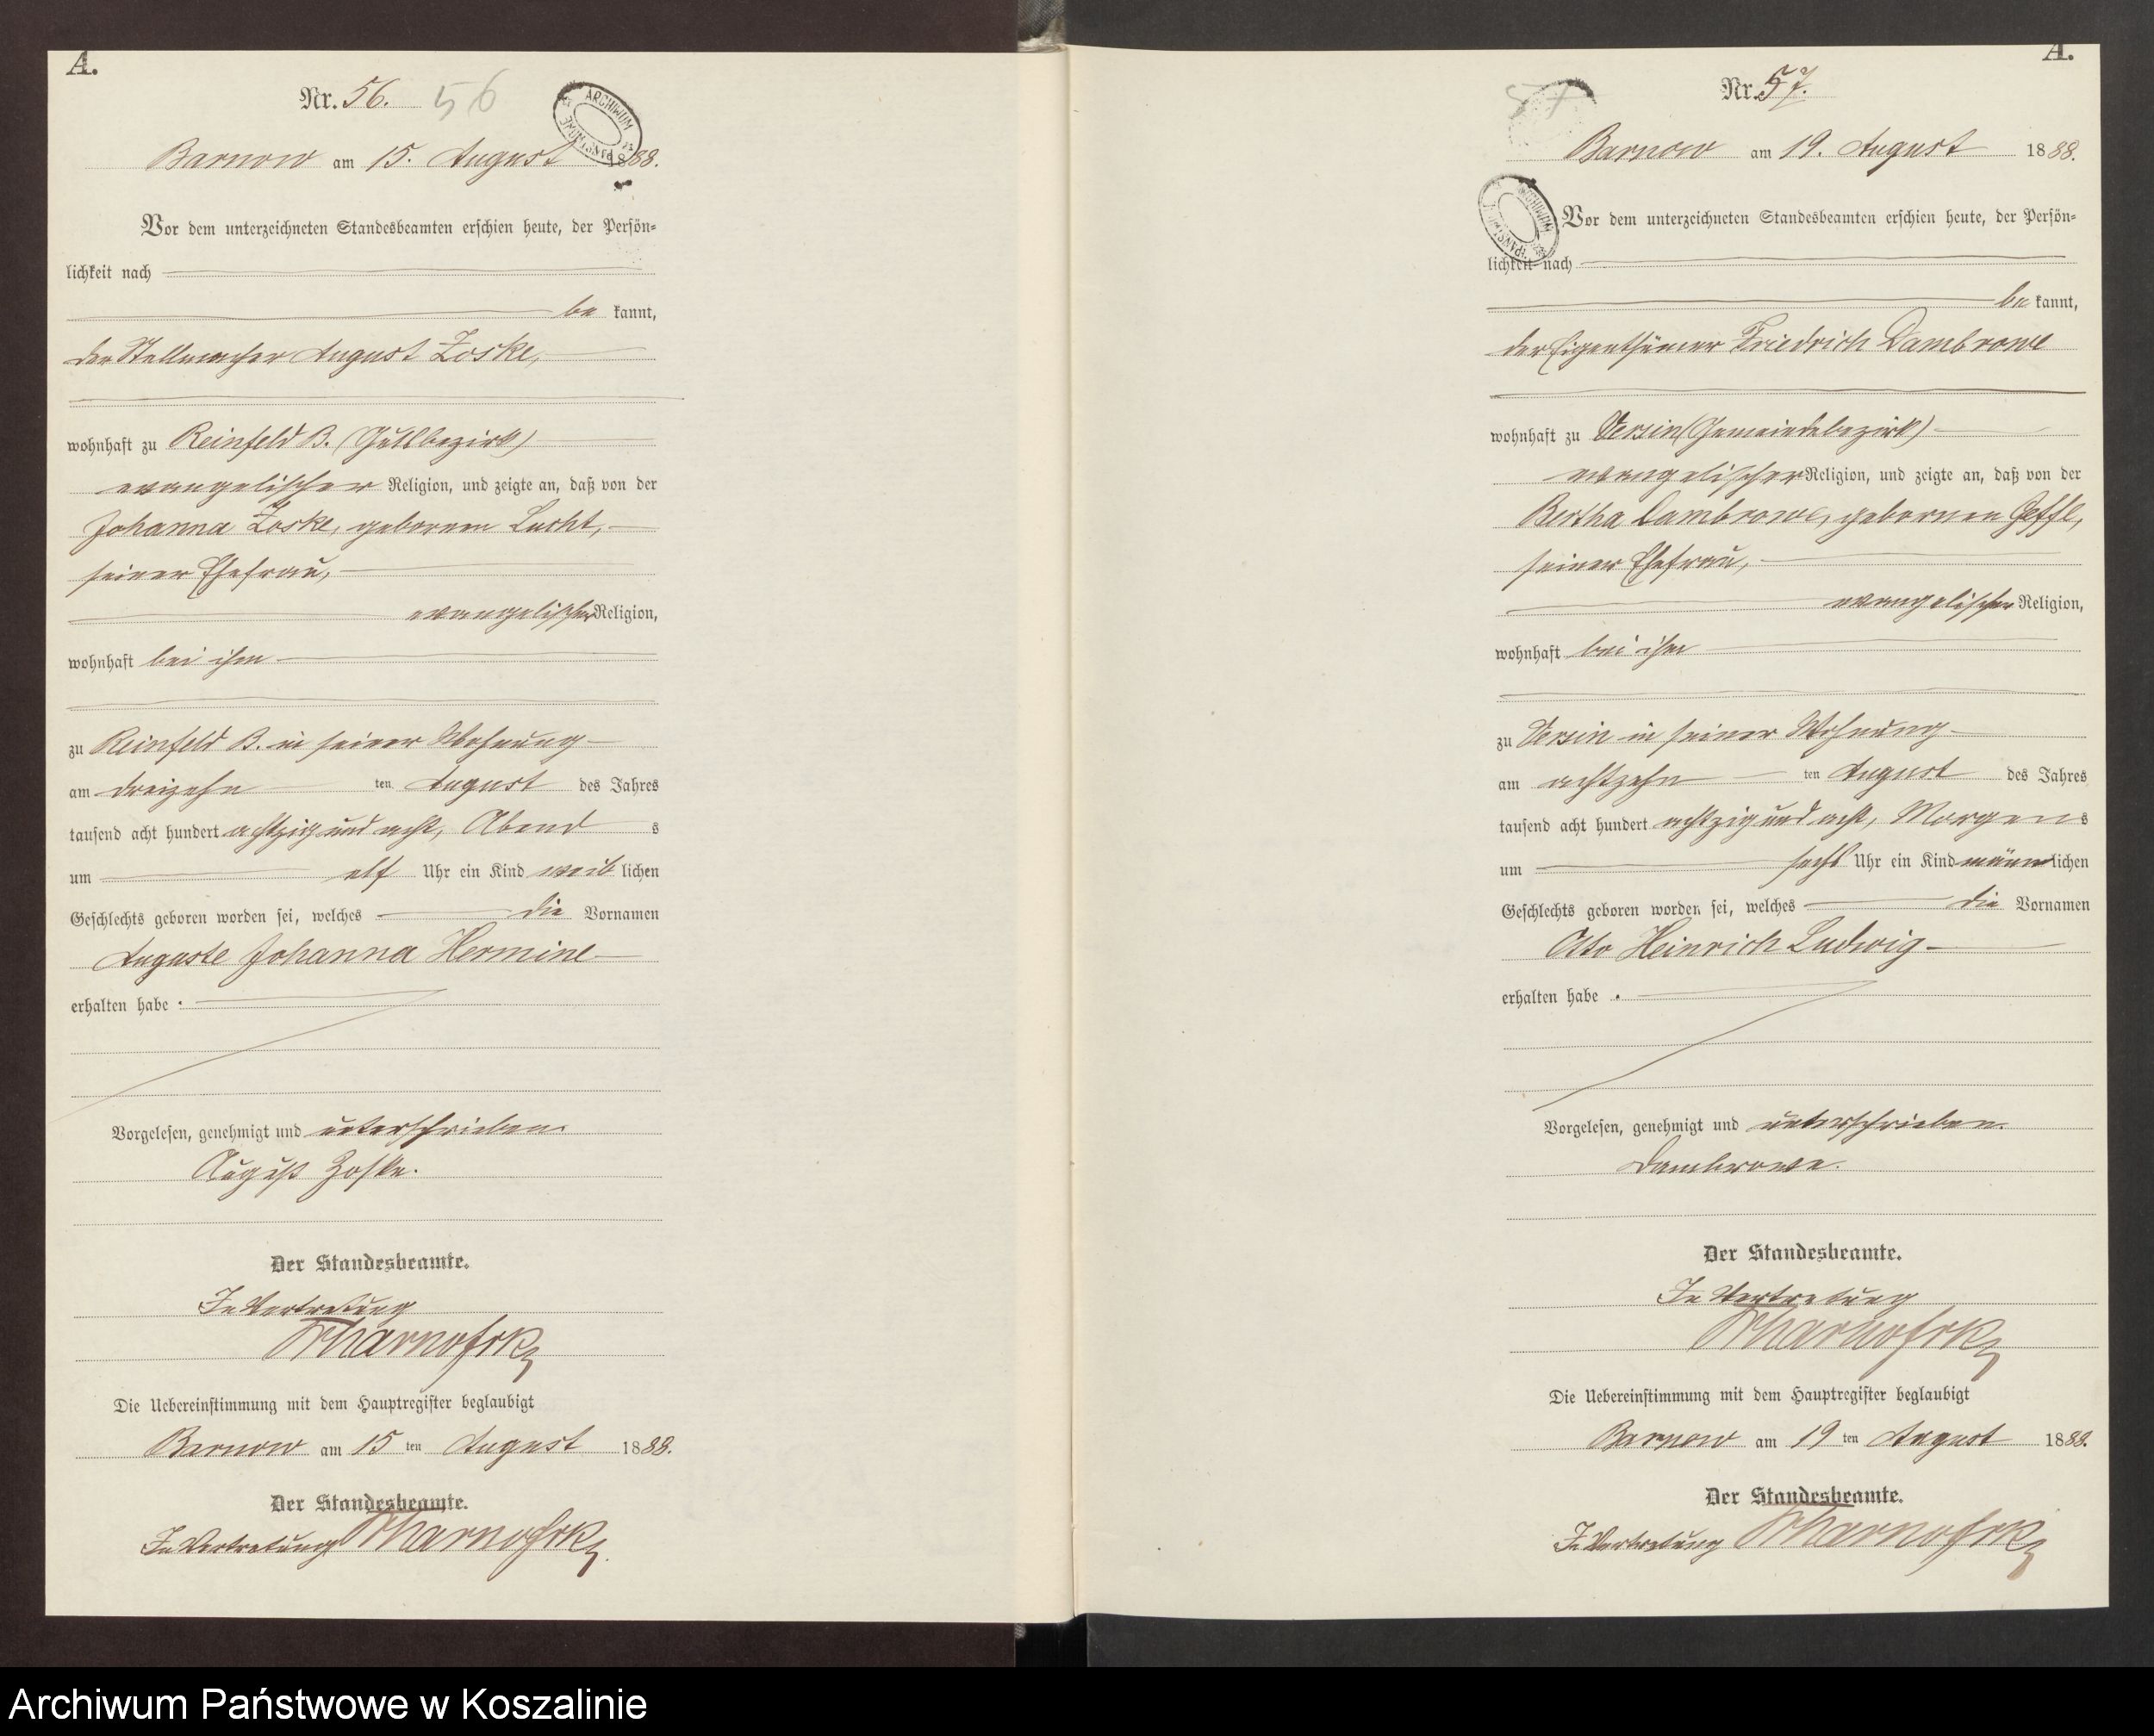 A.
Nr. 56. 56
ARCHIWUM PAŃSTWOWE
Barnow am 15. August 1888.
Vor dem unterzeichneten Standesbeamten erschien heute, der Persön-
lichkeit nach
be kannt,
der Stellmacher August Zoske,
wohnhaft zu Reinfeld B. (Gutsbezirk)
evangelischer Religion, und zeigte an, daß von der
Johanna Zoske, geborenen Lucht,
seiner Ehefrau,
evangelischer Religion,
wohnhaft bei ihm
zu Reinfeld B. in seiner Wohnung
am dreizehn ten August des Jahres
tausend acht hundert achtzig und acht, Abend s
um elf Uhr ein Kind weib lichen
Geschlechts geboren worden sei, welches die Vornamen
Auguste Johanna Hermine
erhalten habe .
Vorgelesen, genehmigt und unterschrieben.
August Zoske.
Der Standesbeamte.
In Vertretung
Die Uebereinstimmung mit dem Hauptregister beglaubigt
Barnow am 15 ten August 1888.
Der Standesbeamte.
In Vertretung
A.
57 Nr. 57.
Barnow am 19. August 1888.
ARCHIWUM PAŃSTWOWE
Vor dem unterzeichneten Standesbeamten erschien heute, der Persön-
lichkeit nach
be kannt,
der Eigenthümer Friedrich Dambrowe
wohnhaft zu Versin (Gemeindebezirk)
evangelischer Religion, und zeigte an, daß von der
Bertha Dambrowe, gebornen
seiner Ehefrau,
evangelischer Religion,
wohnhaft bei ihm
zu Versin in seiner Wohnung
am achtzehn ten August des Jahres
tausend acht hundert achtzig und acht, Morgen s
um sechs Uhr ein Kind männ lichen
Geschlechts geboren worden sei, welches die Vornamen
Otto Heinrich Ludwig
erhalten habe .
Vorgelesen, genehmigt und unterschrieben.
Dambrowe.
Der Standesbeamte.
In Vertretung
Die Uebereinstimmung mit dem Hauptregister beglaubigt
Barnow am 19 ten August 1888.
Der Standesbeamte.
In Vertretung
Archiwum Państwowe w Koszalinie